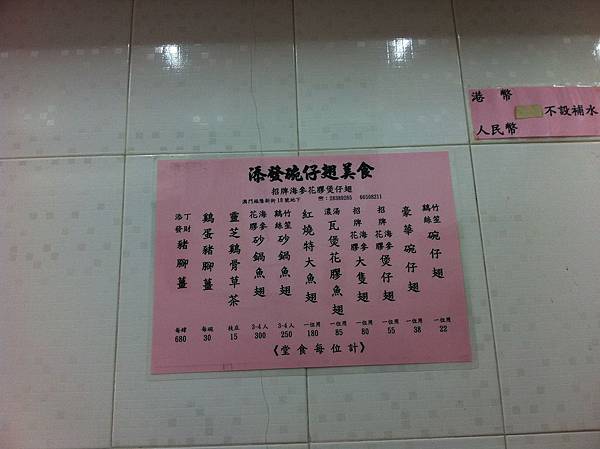 添發碗仔翅美食
招牌海參花膠煲仔翅
澳門福隆新街18號地下 ☎:28389285 66108211
竹笙鷄絲碗仔翅 一位用 22
豪華碗仔翅 一位用 38
招牌海參花膠煲仔翅 一位用 55
招牌海參花膠大隻翅 一位用 80
濃湯瓦煲花膠魚翅 一位用 85
紅燒特大魚翅 一位用 180
竹笙鷄絲砂鍋魚翅 3-4人 250
海參花膠砂鍋魚翅 3-4人 300
靈芝鷄骨草茶 15
鷄蛋豬腳薑 每碗 30
添發丁財豬腳薑 680
《堂食每位計》
港幣
不設補水
人民幣